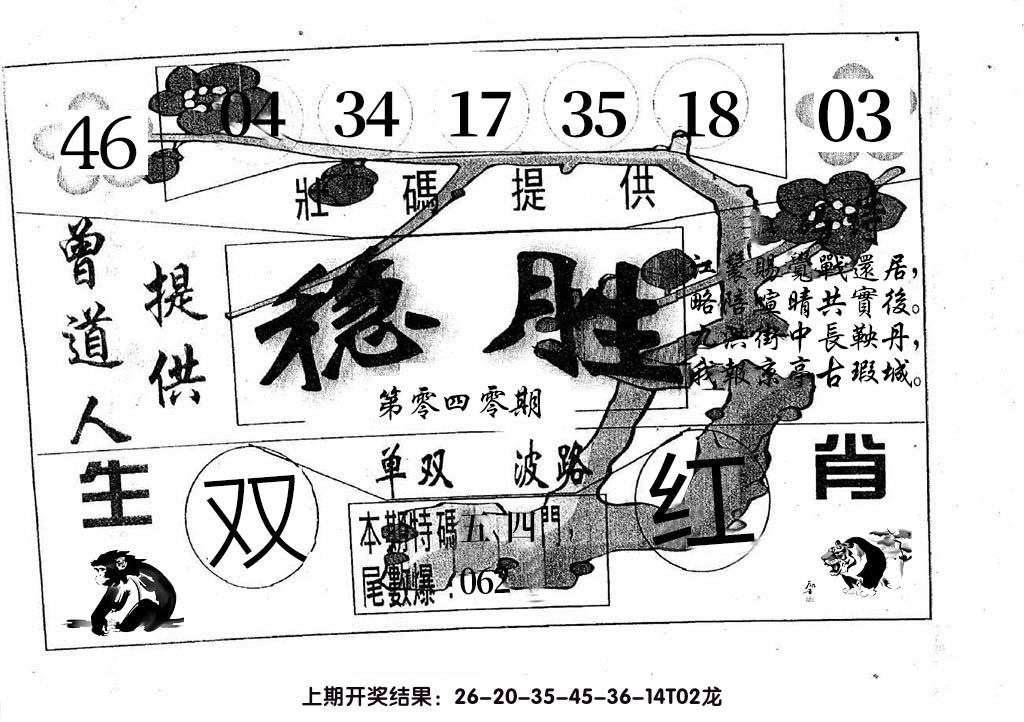 46 04 34 17 35 18 03
壯碼提供
特
曾道人
提供
稳胜
第零四零期
江鬢賜覺戰還居，
略陪喧晴共實後。
九洪街中長鞅丹，
我報京亭古瑕城。
生肖
双
单双 波路
红
本期特碼五、四門，
尾數爆：062
上期开奖结果：26-20-35-45-36-14T02龙